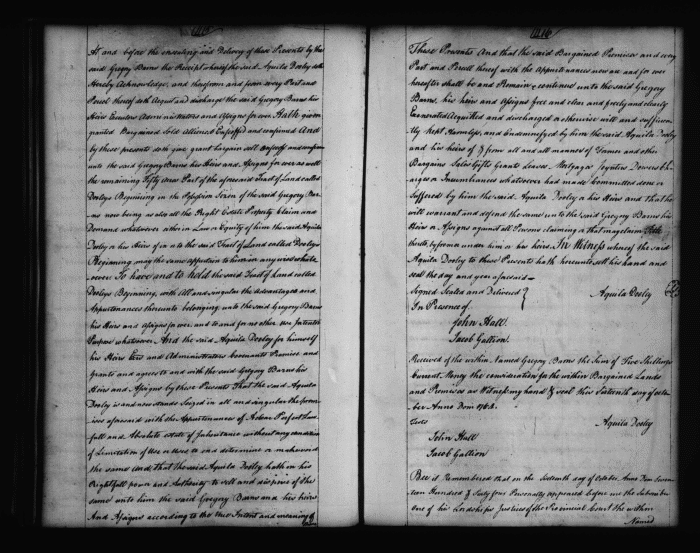 At and before the ensealing and Delivery of these Presents by the
said Gregory Barns the Receipt whereof the said Aquila Dooly doth
Hereby Acknowledge, and therefrom and from every Part and
Percel thereof doth Acquit and discharge the said Gregory Barns his
Heirs Executors Administrators and Assigns for ever Hath given
granted Bargained Sold Aliened Enfeoffed and confirmed And
by these presents doth give grant bargain sell enfeoff and confirm
unto the said Gregory Barns his Heirs and Assigns for ever as well
the remaining Fifty Acres Part of the aforesaid Tract of Land called
Doolys Beginning in the Possession of the said Gregory Bar-
ns now being as also all the Right Estate Property Claim and
Demand whatsoever either in Law or Equity of him the said Aquila
Dooly his Heirs of in or to the said Tract of Land called Doolys
Beginning may the same appertain to him in any wise whats-
oever To have and to hold the said Tract of Land called
Doolys Beginning with All and singular the Advantages and
Appurtenances thereunto belonging unto the said Gregory Barns
his Heirs and Assigns for ever and to and for no other Use Intent or
Purpose whatsoever And the said Aquila Dooly for himself
his Heirs Exrs and Administrators Covenants Promises and
grants and agrees to and with the said Gregory Barns his
Heirs and Assigns by these Presents That the said Aquila
Dooly is and now stands Seized in all and singular the prem-
ises aforesaid with the Appurtenances of A clear Perfect Law-
full and Absolute estate of Inheritance without any condition
of Limitation of Use or Uses to end determine or make void
the same and that the said Aquila Dooly hath in his
Right full power and Authority to sell and dispose of the
same unto him the said Gregory Barns and his heirs
And Assigns according to the true Intent and meaning of
These Presents And that the said Bargained Premises and every
Part and Percell thereof with the Appurtenances now are and for ever
hereafter shall be and Remain continued unto the said Gregory
Barns, his heirs and Assigns free and clear and freely and clearly
Exonerated Acquitted and discharged or otherwise will and sufficien-
tly kept Harmless, and Indemnifyed by him the said Aquila Dooly
and his heirs of & from all and all manner of former and other
Bargains Sales Gifts Grants Leases Mortgages Joynters Dowers Ch-
arges or Incumbrances whatsoever had made Committed done or
Suffered by him the said Aquila Dooly or his Heirs and that he
will warrant and defend the same unto the said Gregory Barns his
Heirs or Assigns against all Persons claiming or that may claim Title
thereto by from or under him or his heirs. In Witness whereof the said
Aquila Dooly to these Presents hath hereunto sett his hand and
seal the day and year aforesaid
Signed Sealed and Delivered } Aquila Dooly
In Presence of
John Hall
Jacob Gallion
Received of the within Named Gregory Barns the Sum of Five Shillings
Current Mony the consideration for the within Bargained Lands
and Premises as Witness my hand & seal this Sixteenth day of octo-
ber Anno Dom 1764.
Teste Aquila Dooly
John Hall
Jacob Gallion
Bee it Remembered that on the sixteenth day of October Anno Dom Seven-
teen Hundred & Sixty four Personally appeared before us the Subscribers
one of his Lordships Justices of the Provincial Court the within
Named